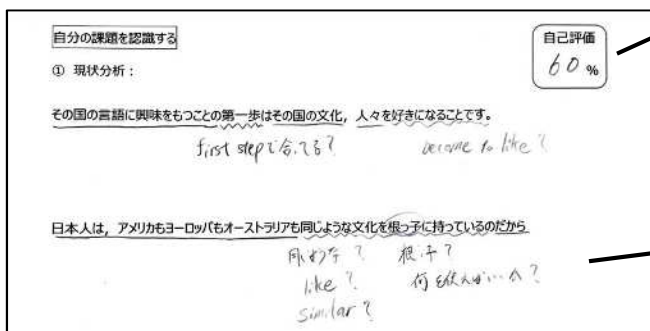 自分の課題を認識する
自己評価
60 %
① 現状分析：
その国の言語に興味をもつことの第一歩はその国の文化，人々を好きになることです。
first stepで合ってる？ become to like？
日本人は，アメリカもヨーロッパもオーストラリアも同じような文化を根っ子に持っているのだから
同じような？ 根っ子？
like？ 何を使えばいいか？
similar？